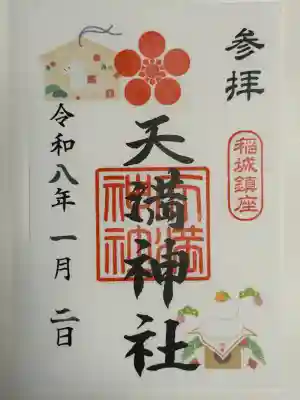 参拝
稲城鎮座
天満神社
天満神社
令和八年 一月 二日